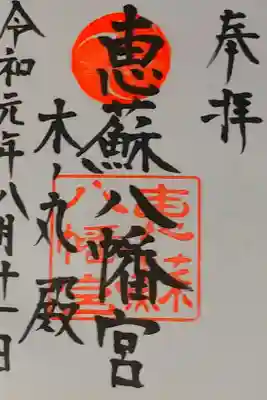 奉拝
恵蘇八幡宮
木ノ丸殿
令和元年八月十一日
恵蘇
八幡宮